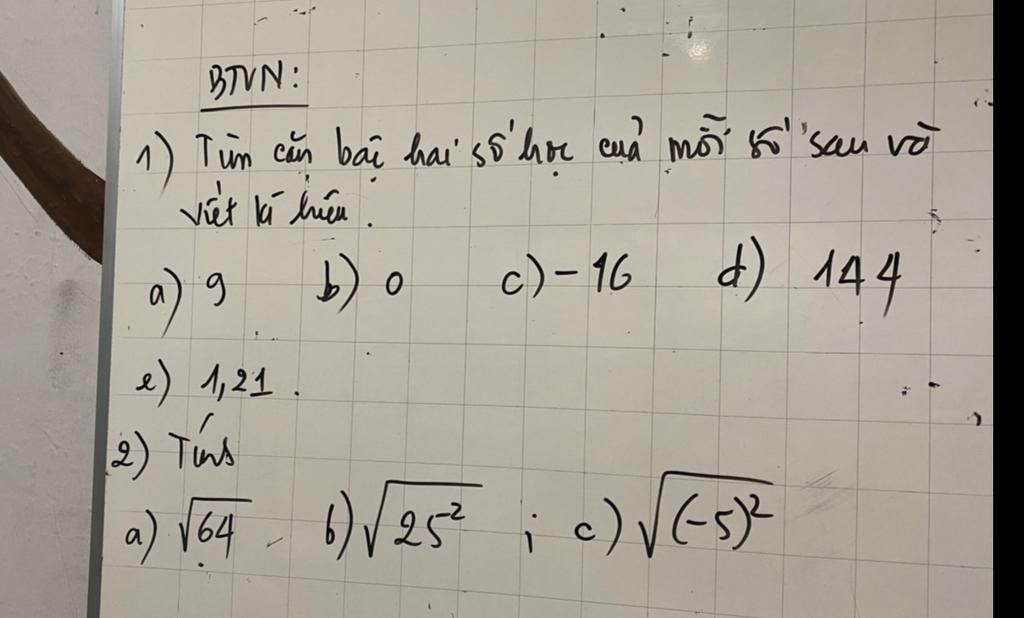 BTVN:
1) Tìm căn bậc hai số học của mỗi số sau và
viết kí hiệu.
a) 9 b) 0 c) -16 d) 144
e) 1,21.
2) Tính
a) √64 b) √25² ; c) √(-5)²